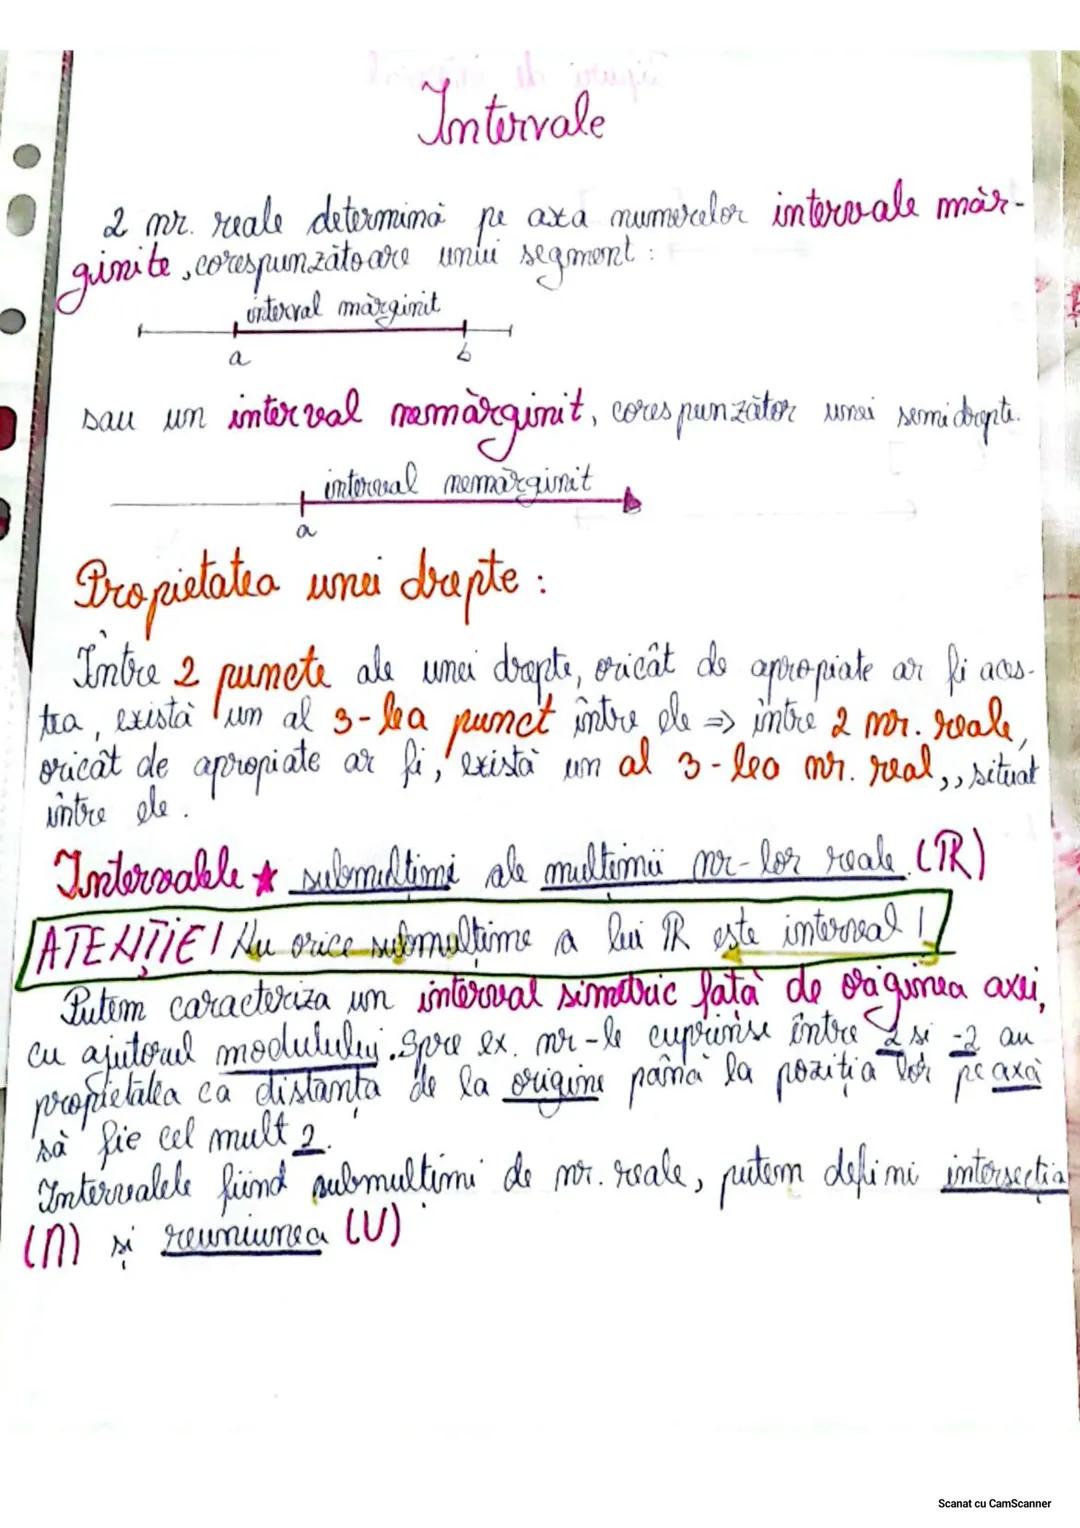 Intervale
2 nr. reale determină pe axa numerelor intervale măr-
ginite, corespunzătoare unui segment:
interval mărginit
a b
sau un interval nemărginit, corespunzător unei semidrepte.
interval nemărginit
a
Propietatea unei drepte:
Între 2 puncte ale unei drepte, oricât de apropiate ar fi aces-
tea, există un al 3-lea punct între ele => între 2 nr. reale,
oricât de apropiate ar fi, există un al 3-lea nr. real,, situat
între ele.
Intervalele ★ submultimi ale multimii nr-lor reale (R)
ATENȚIE! Nu orice submulțime a lui R este interval!
Putem caracteriza un interval simetric fată de originea axei,
cu ajutorul modulului. Spre ex. nr-le cuprinse între 2 si -2 au
propietatea ca distanta de la origine până la poziția lor pe axă
să fie cel mult 2.
Intervalele fiind submultimi de nr. reale, putem defini intersecția
(∩) și reuniunea (U)
Scanat cu CamScanner